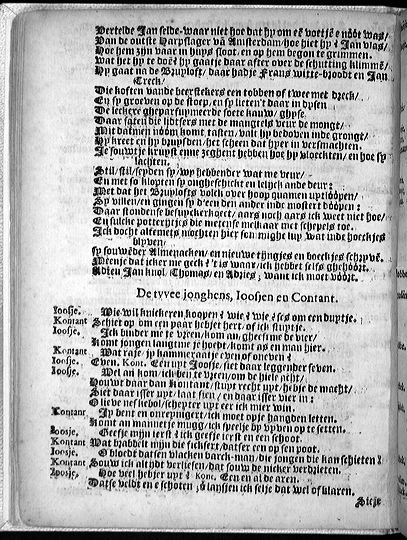 Vertelde Jan selde-waer niet hoe dat hy om een votje e nóót was/
Van de outste Harpslager va Amsterdam/ hoe hiet hy? Jan vlas/
Hoe hem zijn vaar in huys sloot/ en op hem begon te grimmen.
wat het hy te doe? hy gaatje daar after over de schutting klimme?
Hy gaat na de Bruyloft/ daar hadje Frans witte-broodt en Jan
Treck/
Die kosten vande beerstekers een tobben of twee met dreck/
En sy groeven op de stoep/ en sy lieten't daar in
De leckere gheparfumeerde soete
Daar saten die lidtsers met de mangtels veur de mongt/
Mit datmen nóóm komt tasten/ valt hy bedoven inde gronge/
Hy kreet en hy/ het scheen dat hyer in versmachten.
Je souwtje kruyst enne zeghent hebben hoe hy vloeckten/ en hoe sy
lachten.
Stil/ stil/ seyden sy/ wy hebbender wat me veur/
En met so klopten sy ongheschickt en lelijck ande deur:
Met dat het Bruylofts volck over hoop quamen uptlóópen/
Sy villen/ en gingen sy d'een den ander inde mostert dóópen:
Daar stondense besuyckerkoeckt/ aars noch aars ick weet niet hoe/
En sulcke potterytjes die metense melkaar met schepels toe.
Ick docht altemets mochten hier son might luy wat inde hoeckjes
blyven/
sy souwe der Almenacken/ en nieuwe tyngjes en boeckjes schryve.
Meenje dat icker me geck? 't is waar/ ick hebbet selfs ghehóórt.
Adzen Jan knol/ Thomas/ en Adzies/ want ick moet vóórt.
De tvvee jonghens, Ioosjen en Contant.
Ioosje. Wie wil knickeren koopen? wie? wie? ses om een duytje.
Kontant Schiet op om een paar hebjet hert/ of ick stuytje.
Ioosje. Ick hinder me te vreen/ kom an/ gheef me de vier/
Komt jongen langt me je hoedt/ komt as en man hier.
Kontant Wat raje/ jy kammeraatje even of oneven?
Ioosje. Even. Kont. Een uyt Joosje/ siet daar leggender seven.
Ioosje. Wel an kom/ ick ben te vreen/ om de hiele acht/
Houwt daar dan Kontant/ stuyt recht upt/ hebje de macht/
Siet daar isser upt/ laat sien/ en daar isser vier in:
O lieve nesjebol/ schepter upt eer ick mier win.
Kontant Jy bent en onrepnigert/ ick moet opje handen letten.
Komt an mannetje mugg/ ick speelje by vyven op te setten.
Ioosje. Geefje mijn ierst? ick geefje ierst en een schoot.
Kontant Wat brabbelt mijn die sickfert/ datser een op sen poot.
Ioosje. O bloedt datsen vlacken barck-man/ die jongen die kan schieten?
Kontant Souw ick altydt verliesen/ dat souw de nicker verdrieten.
Ioosje. Hoe veel hebjer upt? Kont. Een en al de aren.
Datse veldt en e schoten/ ó lansjen ick selje dat wel of klaren.
Sieje